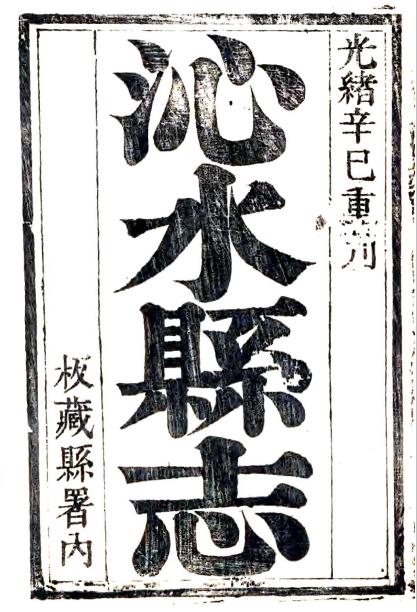 光緒辛巳重刊
沁水縣志
板藏縣署內